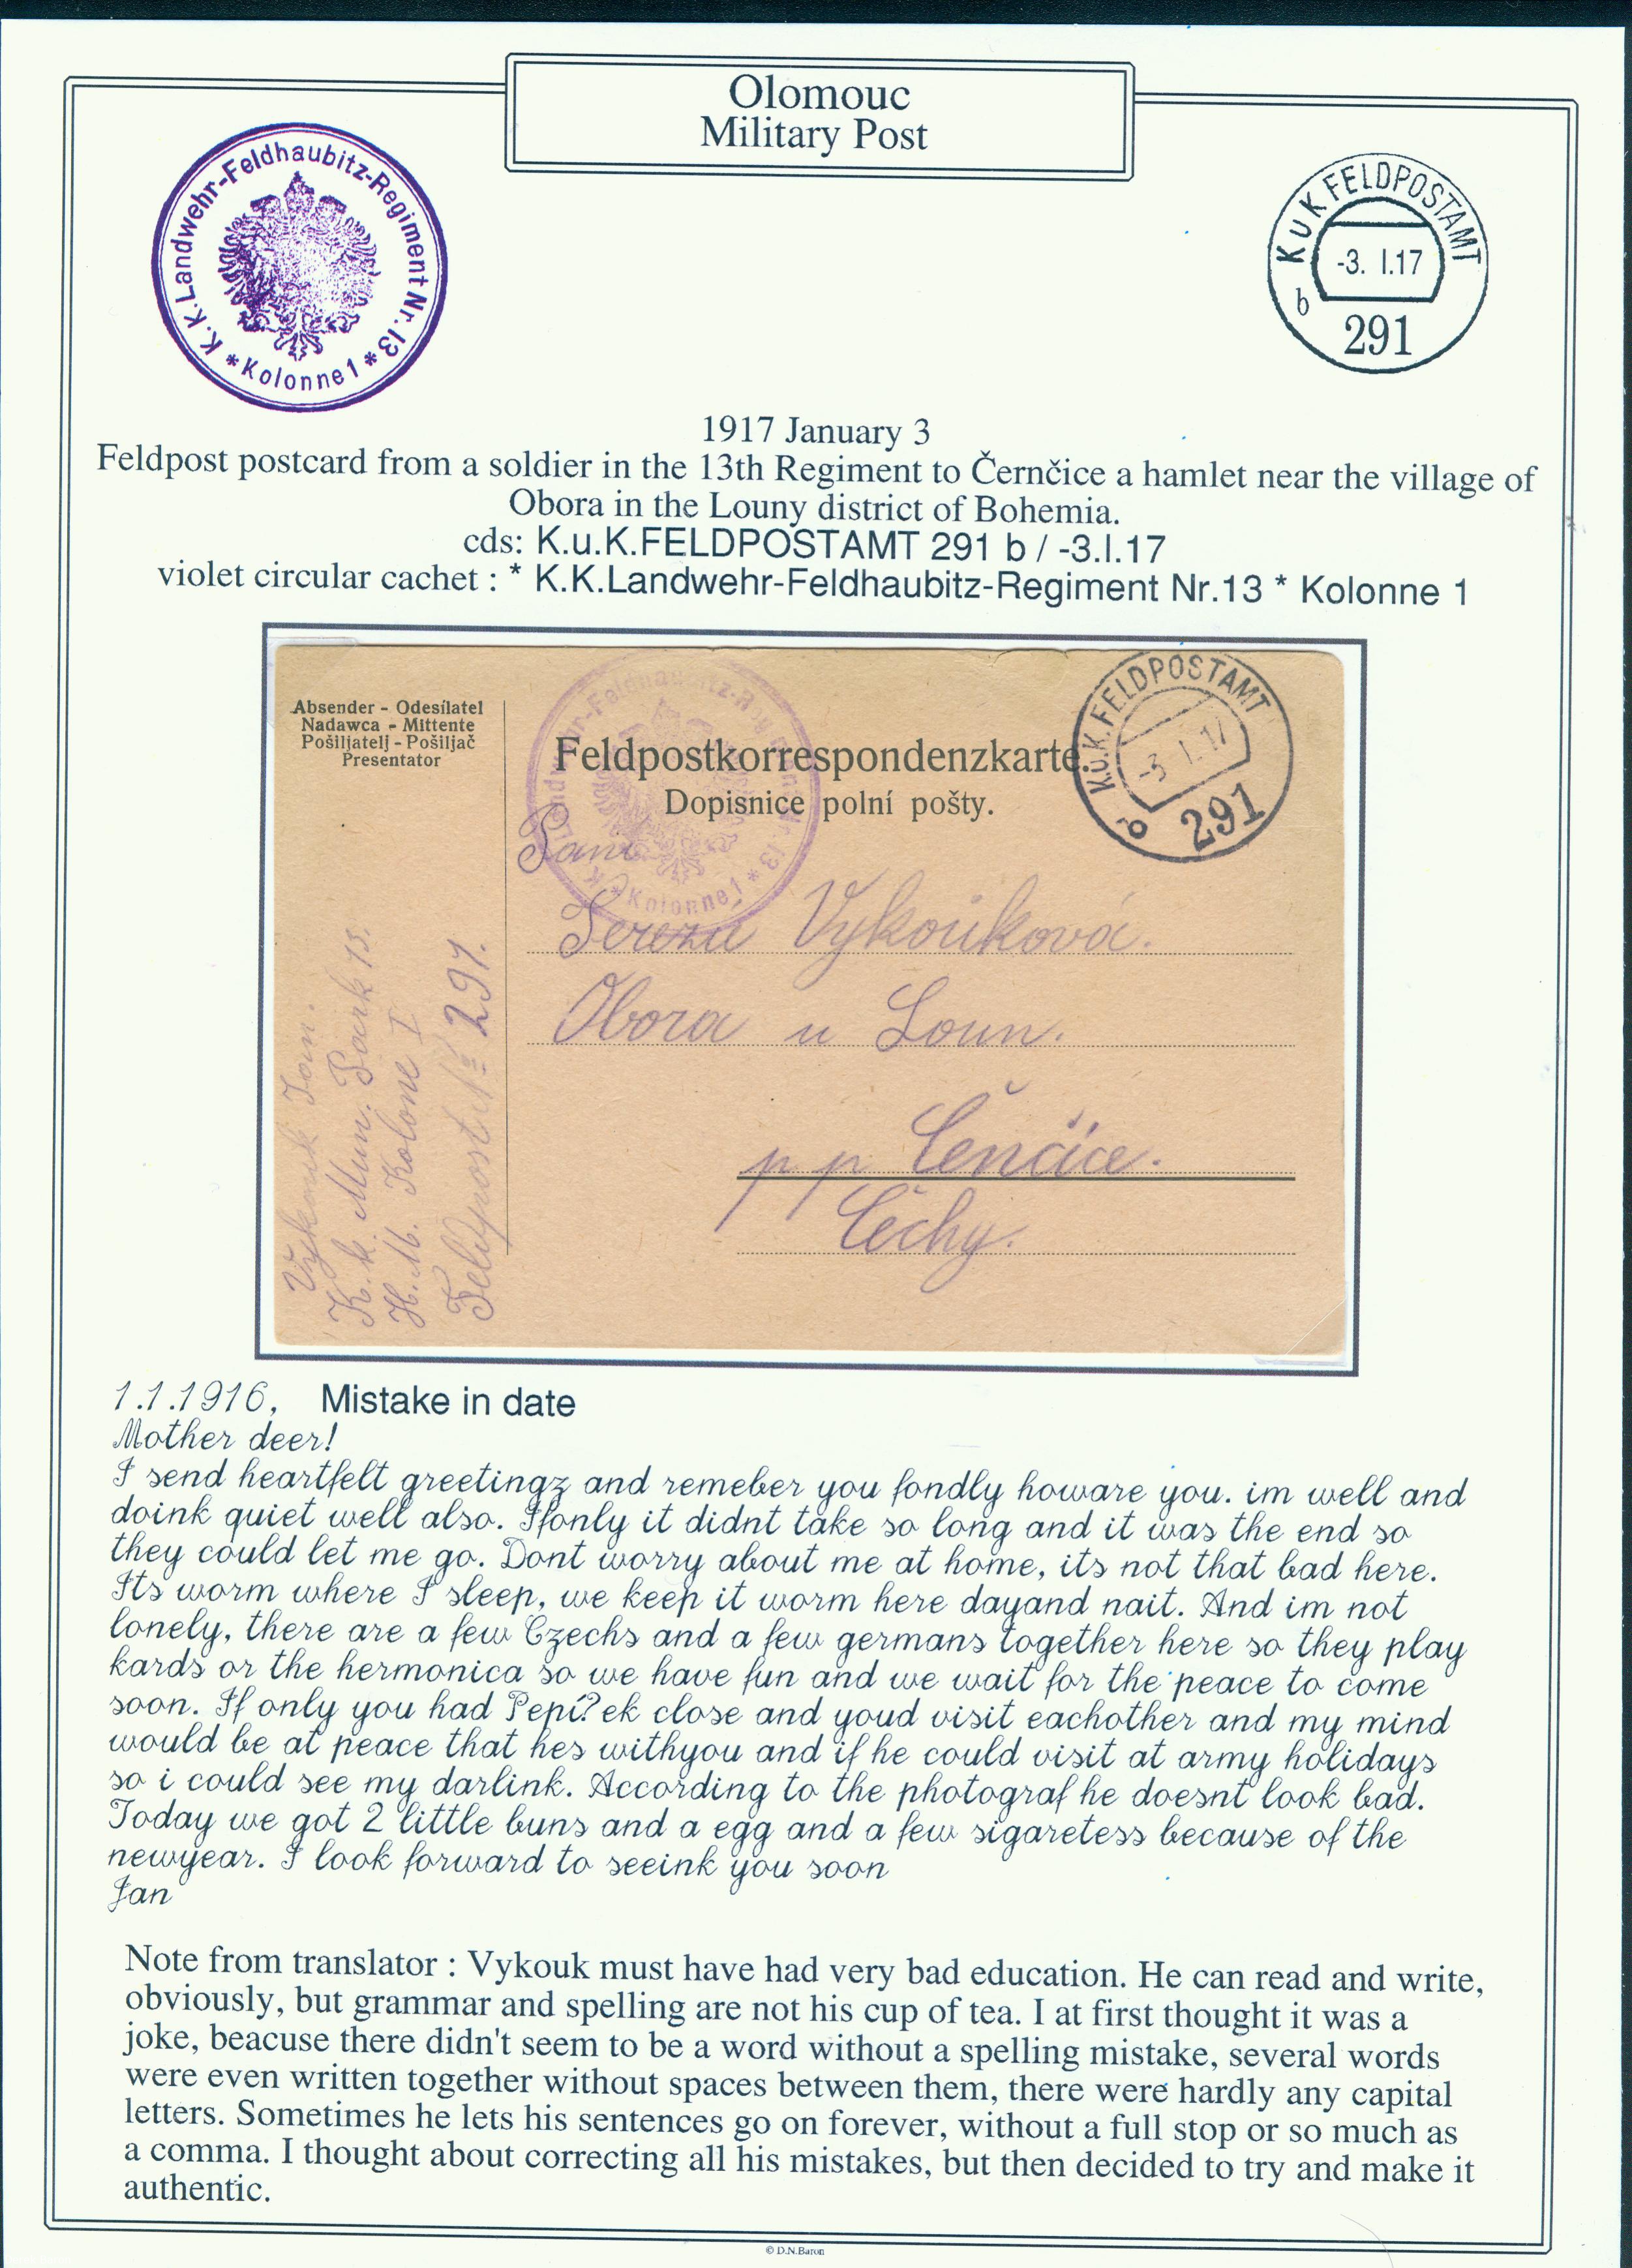 Olomouc
Military Post
K.K.Landwehr-Feldhaubitz-Regiment Nr.13
* Kolonne 1 *
K u K FELDPOSTAMT
-3. I.17
b
291
1917 January 3
Feldpost postcard from a soldier in the 13th Regiment to Černčice a hamlet near the village of
Obora in the Louny district of Bohemia.
cds: K.u.K.FELDPOSTAMT 291 b / -3.I.17
violet circular cachet : * K.K.Landwehr-Feldhaubitz-Regiment Nr.13 * Kolonne 1
Absender - Odesílatel
Nadawca - Mittente
Pošiljatelj - Pošiljač
Presentator
Feldpostkorrespondenzkarte.
Dopisnice polní pošty.
K.u.K.FELDPOSTAMT
-3 I.17
b 291
Kolonne 1 *
Paní
Vykouková.
Obora u Loun.
p p Čenčice.
Čechy.
Vykouk Jan.
K. k. Mun. Park 13.
H. M. Kolone I
Feldpost № 291.
1.1.1916, Mistake in date
Mother deer!
I send heartfelt greetingz and remeber you fondly howare you. im well and
doink quiet well also. Ifonly it didnt take so long and it was the end so
they could let me go. Dont worry about me at home, its not that bad here.
Its worm where I sleep, we keep it worm here dayand nait. And im not
lonely, there are a few Czechs and a few germans together here so they play
kards or the hermonica so we have fun and we wait for the peace to come
soon. If only you had Pepí?ek close and youd visit eachother and my mind
would be at peace that hes withyou and if he could visit at army holidays
so i could see my darlink. According to the photograf he doesnt look bad.
Today we got 2 little buns and a egg and a few sigaretess because of the
newyear. I look forward to seeink you soon
Jan
Note from translator : Vykouk must have had very bad education. He can read and write,
obviously, but grammar and spelling are not his cup of tea. I at first thought it was a
joke, beacuse there didn't seem to be a word without a spelling mistake, several words
were even written together without spaces between them, there were hardly any capital
letters. Sometimes he lets his sentences go on forever, without a full stop or so much as
a comma. I thought about correcting all his mistakes, but then decided to try and make it
authentic.
© D.N.Baron